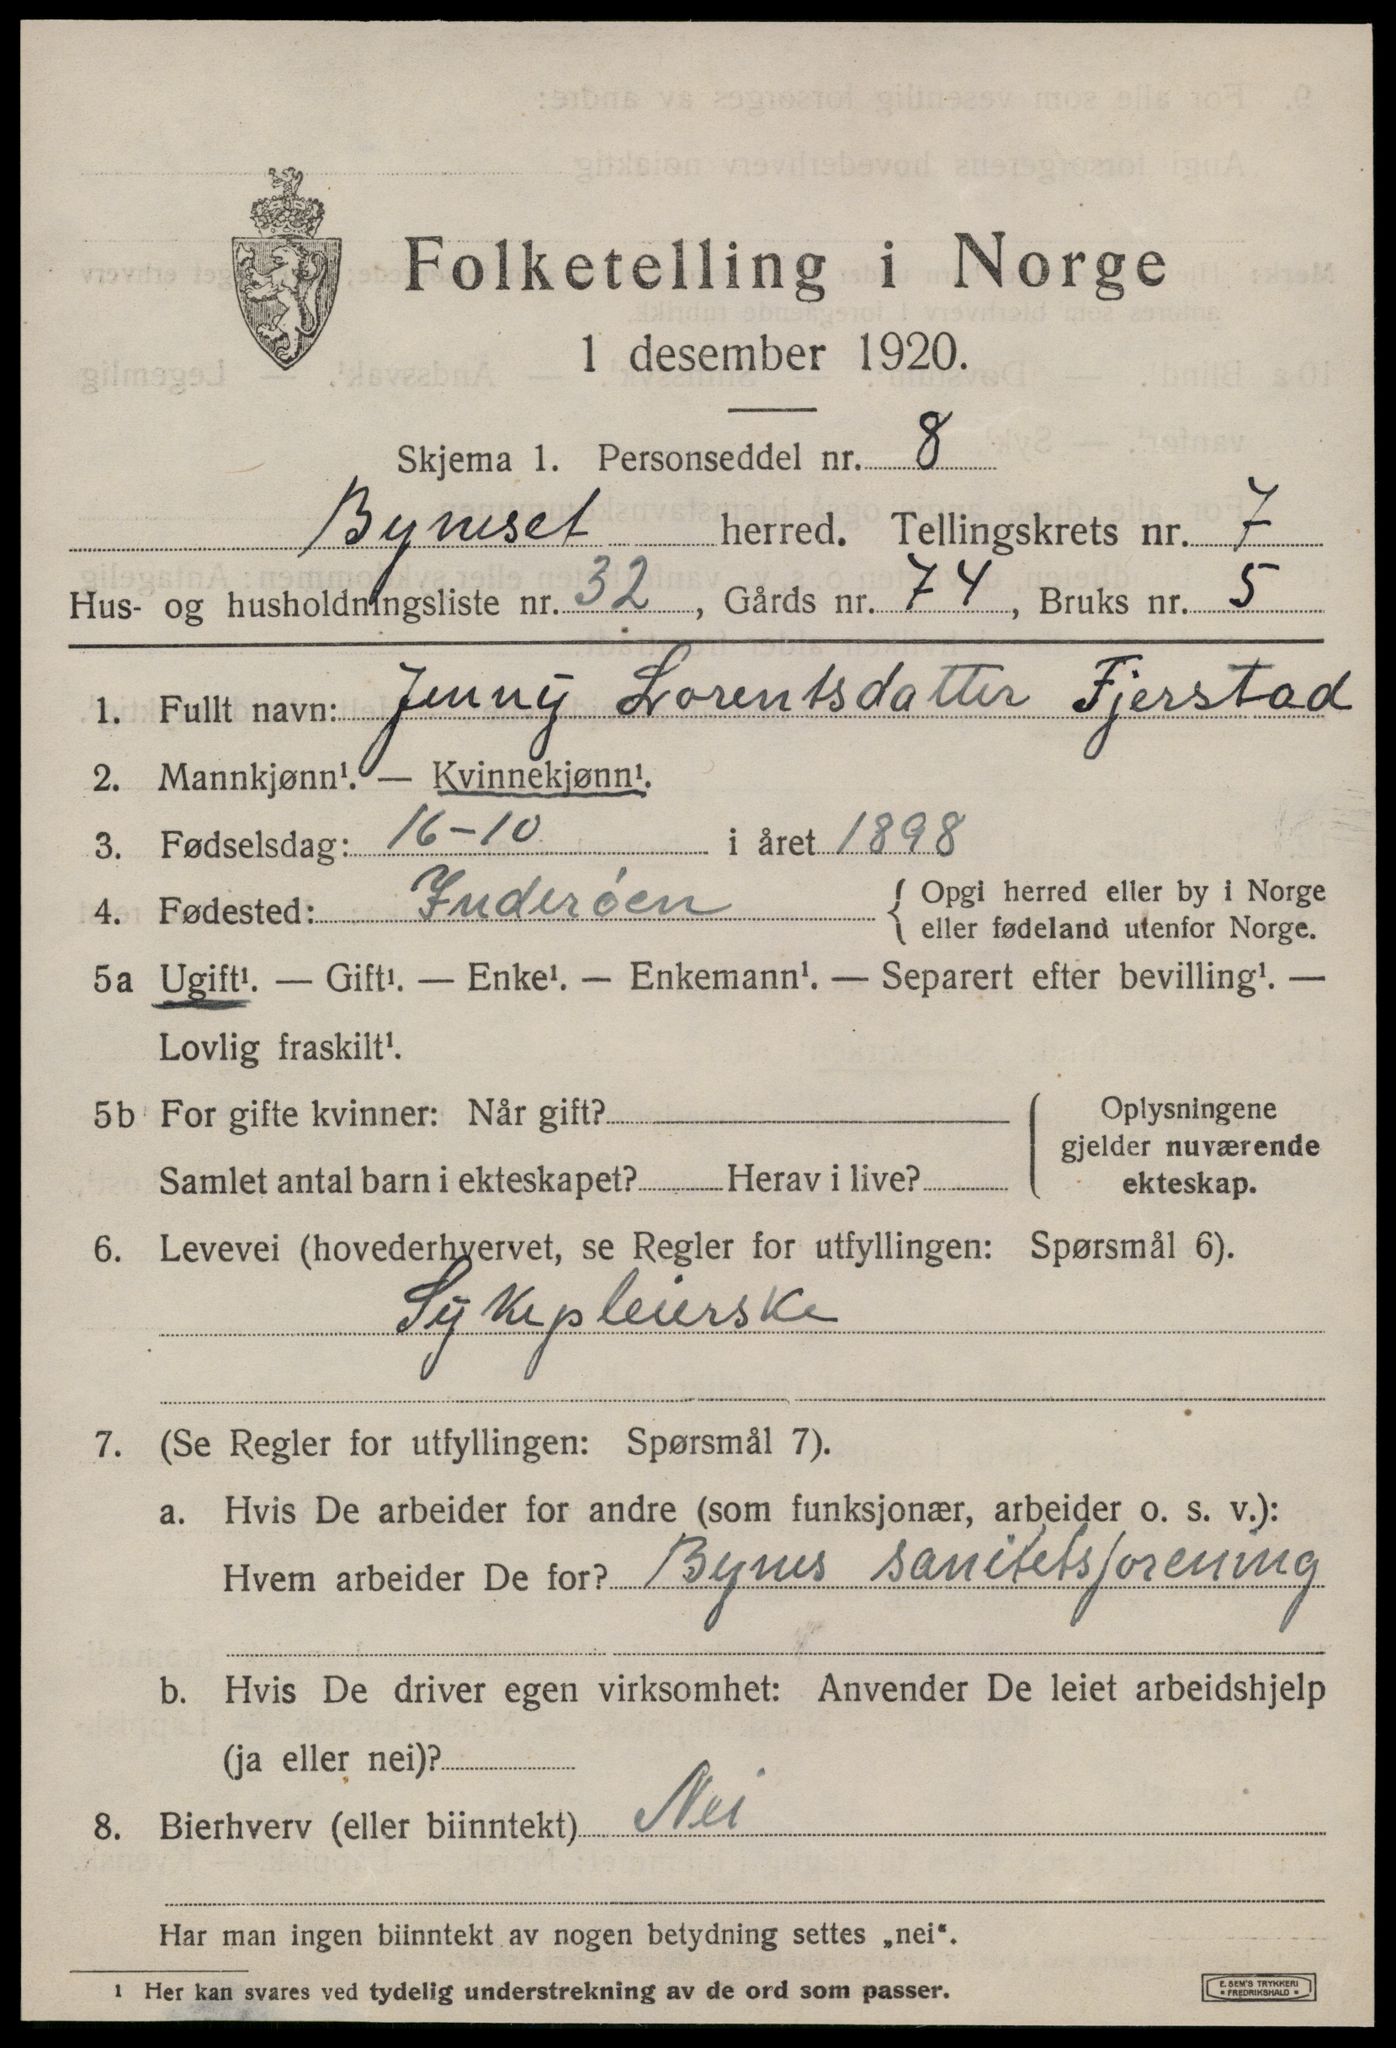 Folketelling i Norge
1 desember 1920.
Skjema 1. Personseddel nr. 8
Byneset herred. Tellingskrets nr. 7
Hus- og husholdningsliste nr. 32, Gårds nr. 74, Bruks nr. 5
1. Fullt navn: Jenny Lorentsdatter Fjerstad
2. Mannkjønn¹. — Kvinnekjønn¹.
3. Fødselsdag: 16-10 i året 1898
4. Fødested: Inderøen { Opgi herred eller by i Norge
eller fødeland utenfor Norge.
5a Ugift¹. — Gift¹. — Enke¹. — Enkemann¹. — Separert efter bevilling¹. —
Lovlig fraskilt¹.
5b For gifte kvinner: Når gift?
Samlet antal barn i ekteskapet? Herav i live?
Oplysningene
gjelder nuværende
ekteskap.
6. Levevei (hovederhvervet, se Regler for utfyllingen: Spørsmål 6).
Sykepleierske
7. (Se Regler for utfyllingen: Spørsmål 7).
a. Hvis De arbeider for andre (som funksjonær, arbeider o. s. v.):
Hvem arbeider De for? Bynes sanitetsforening
b. Hvis De driver egen virksomhet: Anvender De leiet arbeidshjelp
(ja eller nei)?
8. Bierhverv (eller biinntekt) Nei
Har man ingen biinntekt av nogen betydning settes „nei“.
1 Her kan svares ved tydelig understrekning av de ord som passer.
E. SEM'S TRYKKERI
• FREDRIKSHALD •